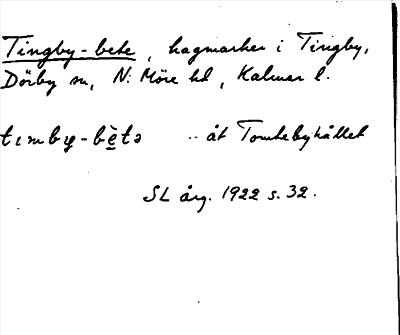 Tingby-bete, hagmarker i Tingby,
Dörby sn, N. Möre hd, Kalmar l.
tımby-bètə .. åt Tomtebyhållet
SL årg. 1922 s. 32.